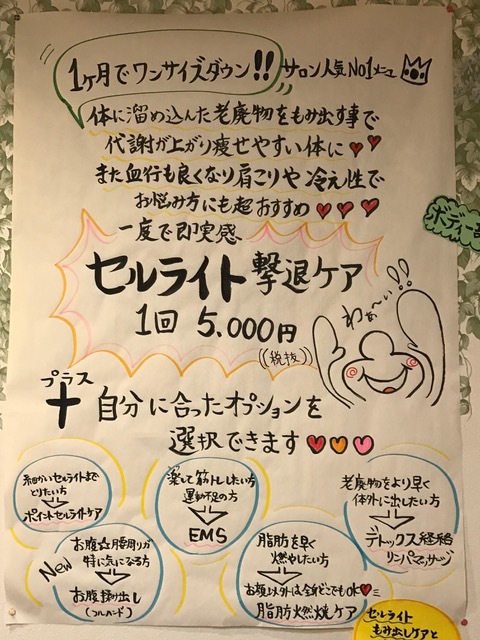 1ヶ月でワンサイズダウン!! サロン人気No1メニュー
体に溜め込んだ老廃物をもみ出す事で
代謝が上がり痩せやすい体に♥♥
また血行も良くなり肩こりや冷え性で
お悩み方にも超おすすめ♥♥♥
一度で即実感
セルライト撃退ケア
1回 5.000円
((税抜))
わぁ〜い!!
ボディー
プラス
+ 自分に合ったオプションを
選択できます♥♥♥
細かいセルライトまで
とりたい方
⇓
ポイントセルライトケア
楽して筋トレしたい方
運動不足の方
⇓
EMS
老廃物をより早く
体外に出したい方
⇓
デトックス経絡
リンパマッサージ
New
お腹☆腰周りが
特に気になる方
⇓
お腹揉み出し
(フルハンド)
脂肪を早く
燃やしたい方
⇓
お顔以外は全身どこでもOK♥
脂肪燃焼ケア
セルライト
もみ出しケアと